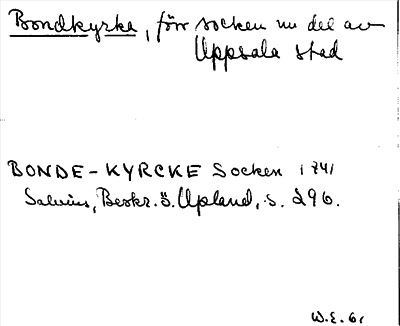 Bondkyrka, förr socken nu del av
Uppsala stad
BONDE-KYRCKE Socken 1741
Salvius, Beskr. ö. Upland, s. 296.
W.E. 61